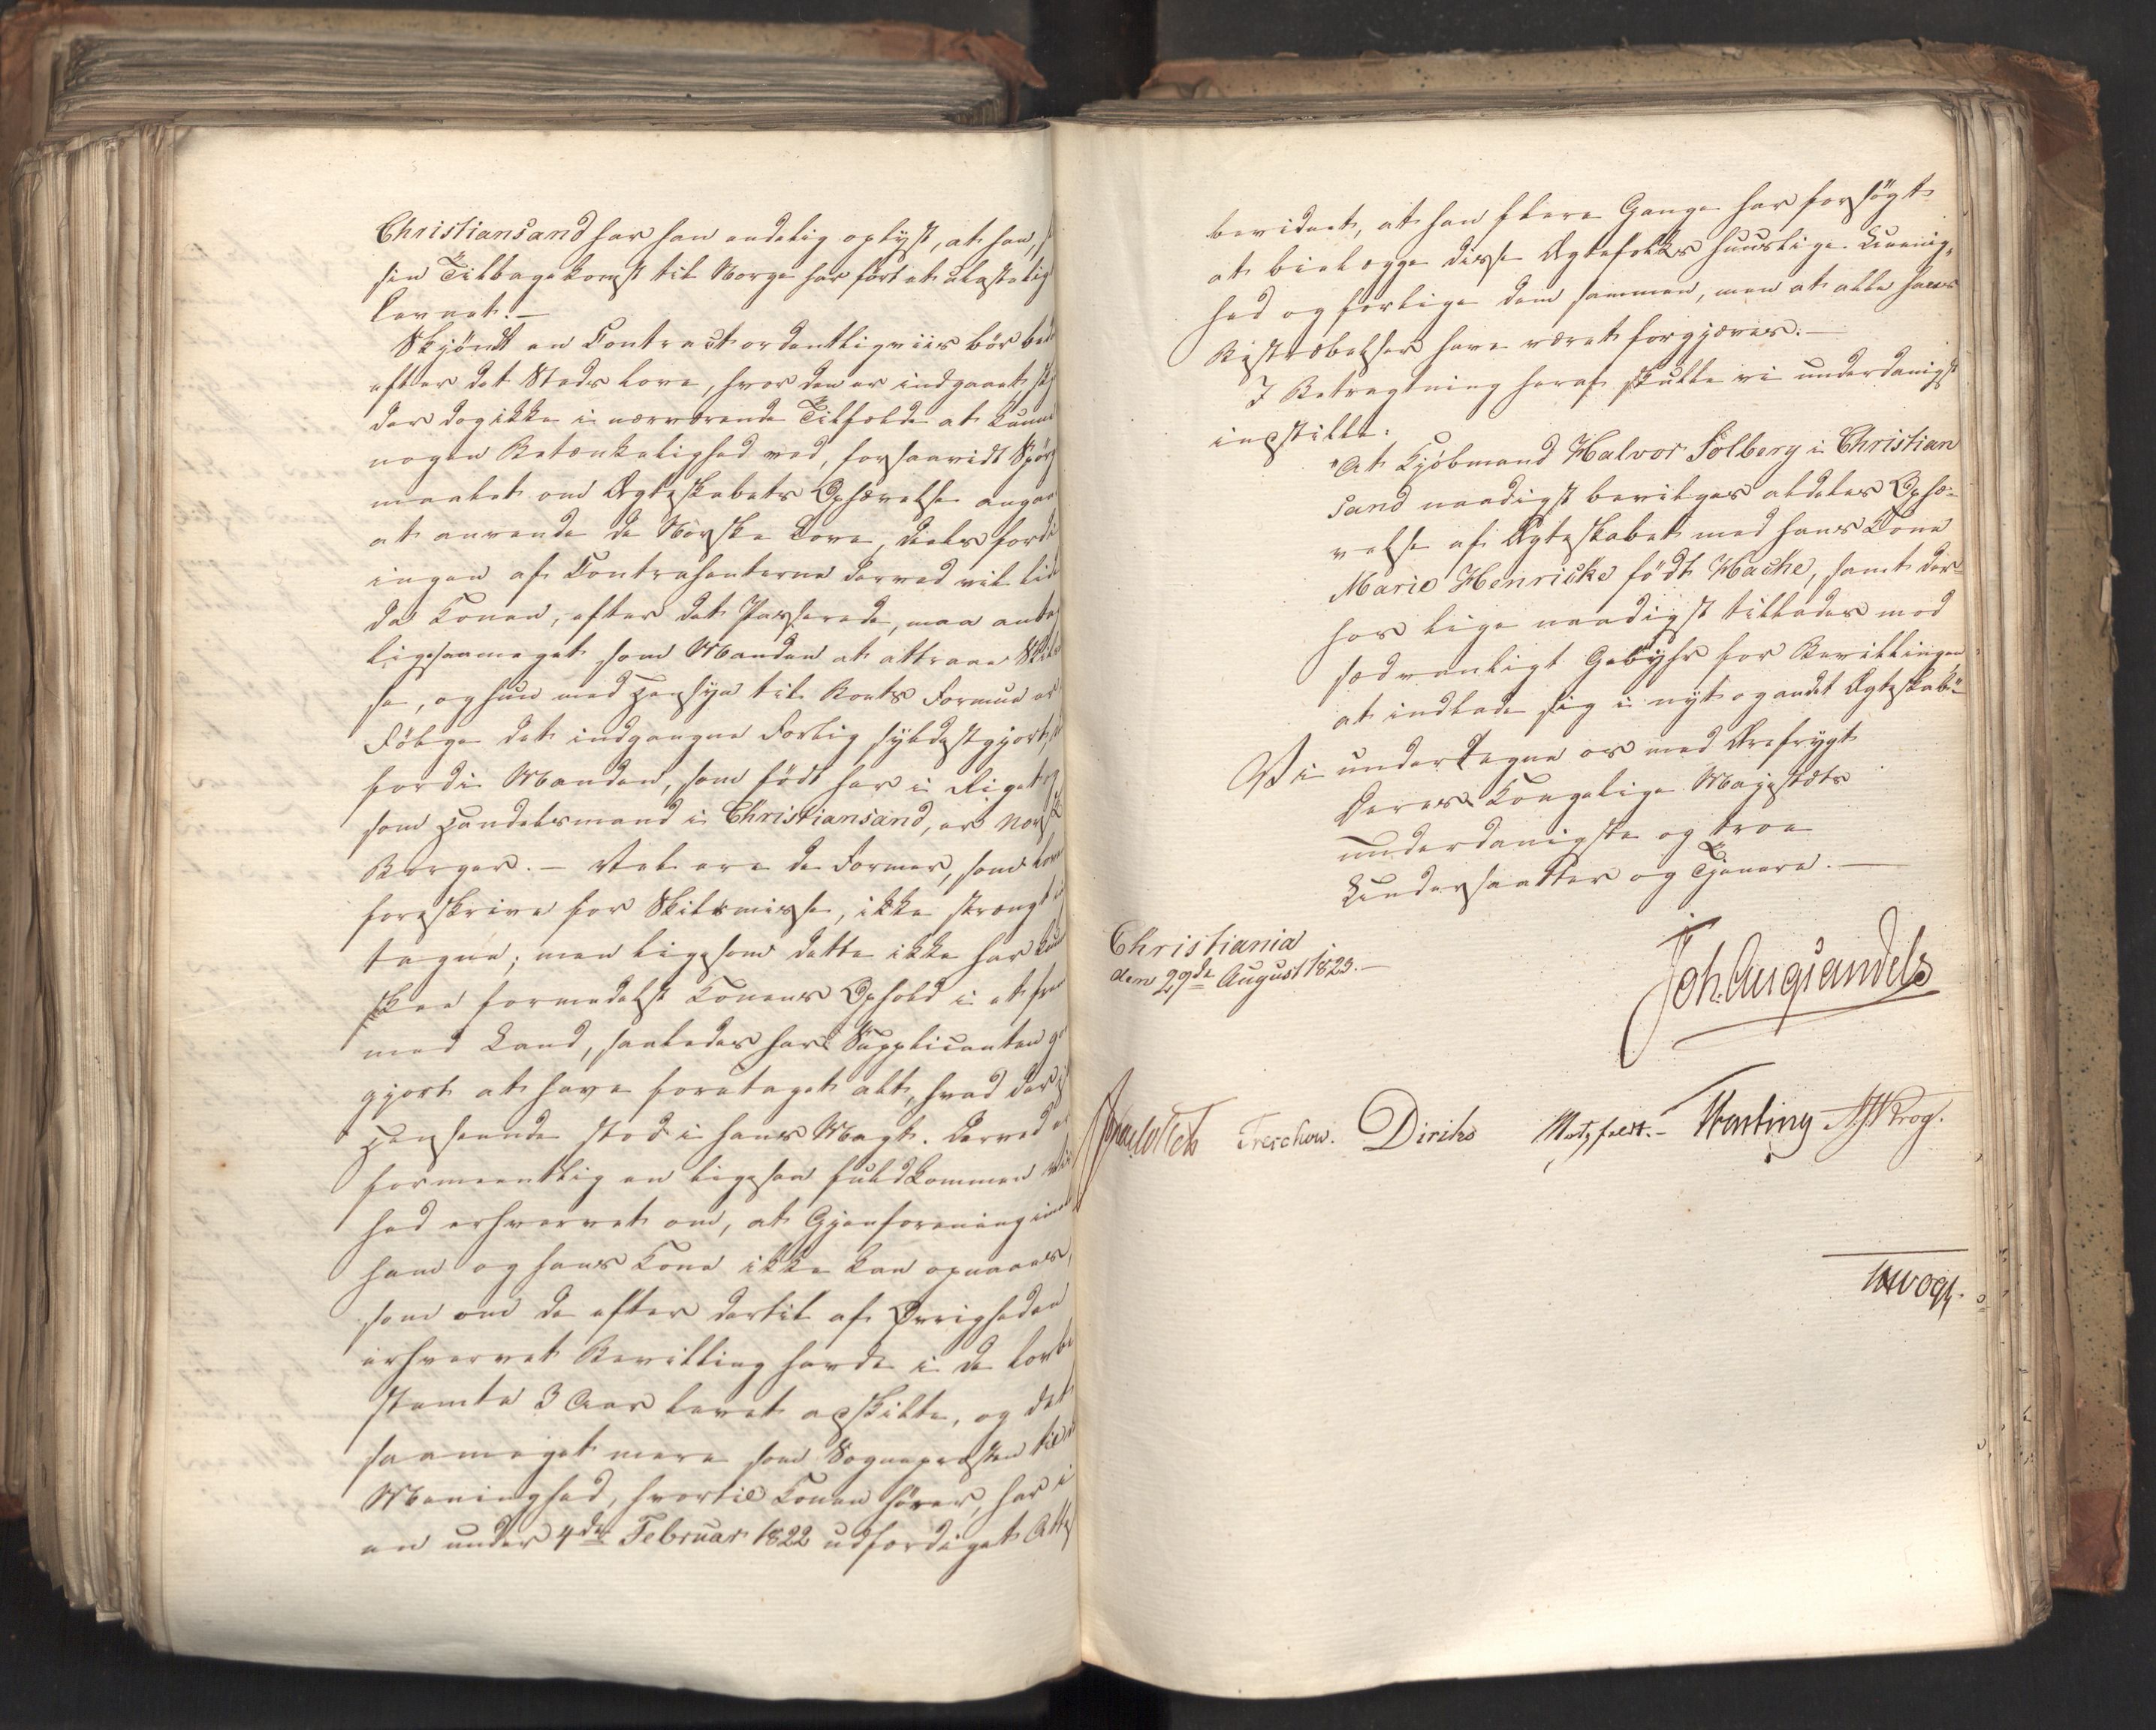 Christiansand har han endelig oplyst, at han,
sin Tilbagekomst til Norge har ført et ulasteligt
Levnet. —
Skjöndt en Contract ordentligviis bör be
efter det Steds Love, hvor den er indgaaet,
der dog ikke i nærværende Tilfælde at kunne
nogen Betænkelighed ved, forsaavidt Spörgs
maalet om Ægteskabets Ophævelse angaaer
at anvende de Norske Love, deels fordi
ingen af Contrahenterne derved vil lide
da Konen, efter det Passerede, maa antages
ligesaameget som Manden at attraae Skilsmis
se, og hun med Hensyn til Boets Formue er
Fölge det indgangne Forlig fyldestgjort,
fordi Manden, som født her i Riget og
som Handelsmand i Christiansand, er Norsk
Borger. — Vel ere de Former, som Loven
foreskrive for Skilsmisse, ikke strengt i
tagne; men ligesom dette ikke har kun
skee formedelst Konens Ophold i et frem
med Land, saaledes har Supplicanten go
gjort at have foretaget alt, hvad der i
Henseende stod i hans Magt. Derved er
formeentlig en ligesaa fuldkommen Vis
hed erhvervet om, at Gjenforening imellem
ham og hans Kone ikke kan opnaaes,
som om de efter dertil af Øvrigheden
erhvervet Bevilling havde i de lovbe
stemte 3 Aar levet adskilte, og det
saameget mere som Sognepræsten til den
Meenighed, hvortil Konen hörer, har i
en under 4de Februar 1822 udfærdiget Attest
bevidnet, at han flere Gange har forsögt
at bielægge disse Ægtefolks huuslige Ueenig„
hed og forlige dem sammen, men at alle hans
Bestræbelser have været forgjæves. —
I Betragtning heraf skulle vi underdanigst
indstille:
"At Kjöbmand Halvor Solberg i Christian
sand naadigst bevilges aldeles Ophæ-
velse af Ægteskabet med hans Kone
Marie Henricke födt Hacke, samt der-
hos lige naadigst tillades mod
sædvanligt Gebyhr for Bevillingen
at indlade sig i nyt og andet Ægteskab."
Vi undertegne os med Ærefrygt
Deres Kongelige Majestæts
underdanigste og troe
Undersaatter og Tjenere. —
Christiania
den 29de August 1823. —
Joh. Aug. Sandels
Treschow. Diriks Motzfeldt. — Fasting Krog.
Vogt.